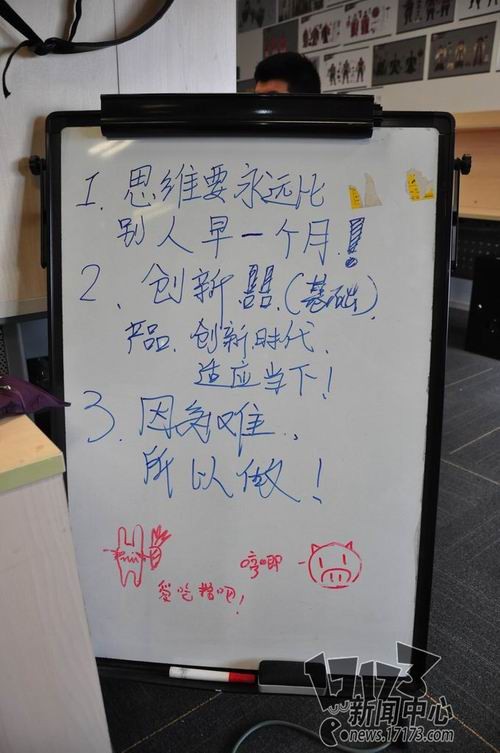 1、思维要永远比
别人早一个月!
2、创新 (基础)
产品、创新时代、
适应当下!
3、因为难、
所以做!
哼唧
17173
新闻中心
news.17173.com